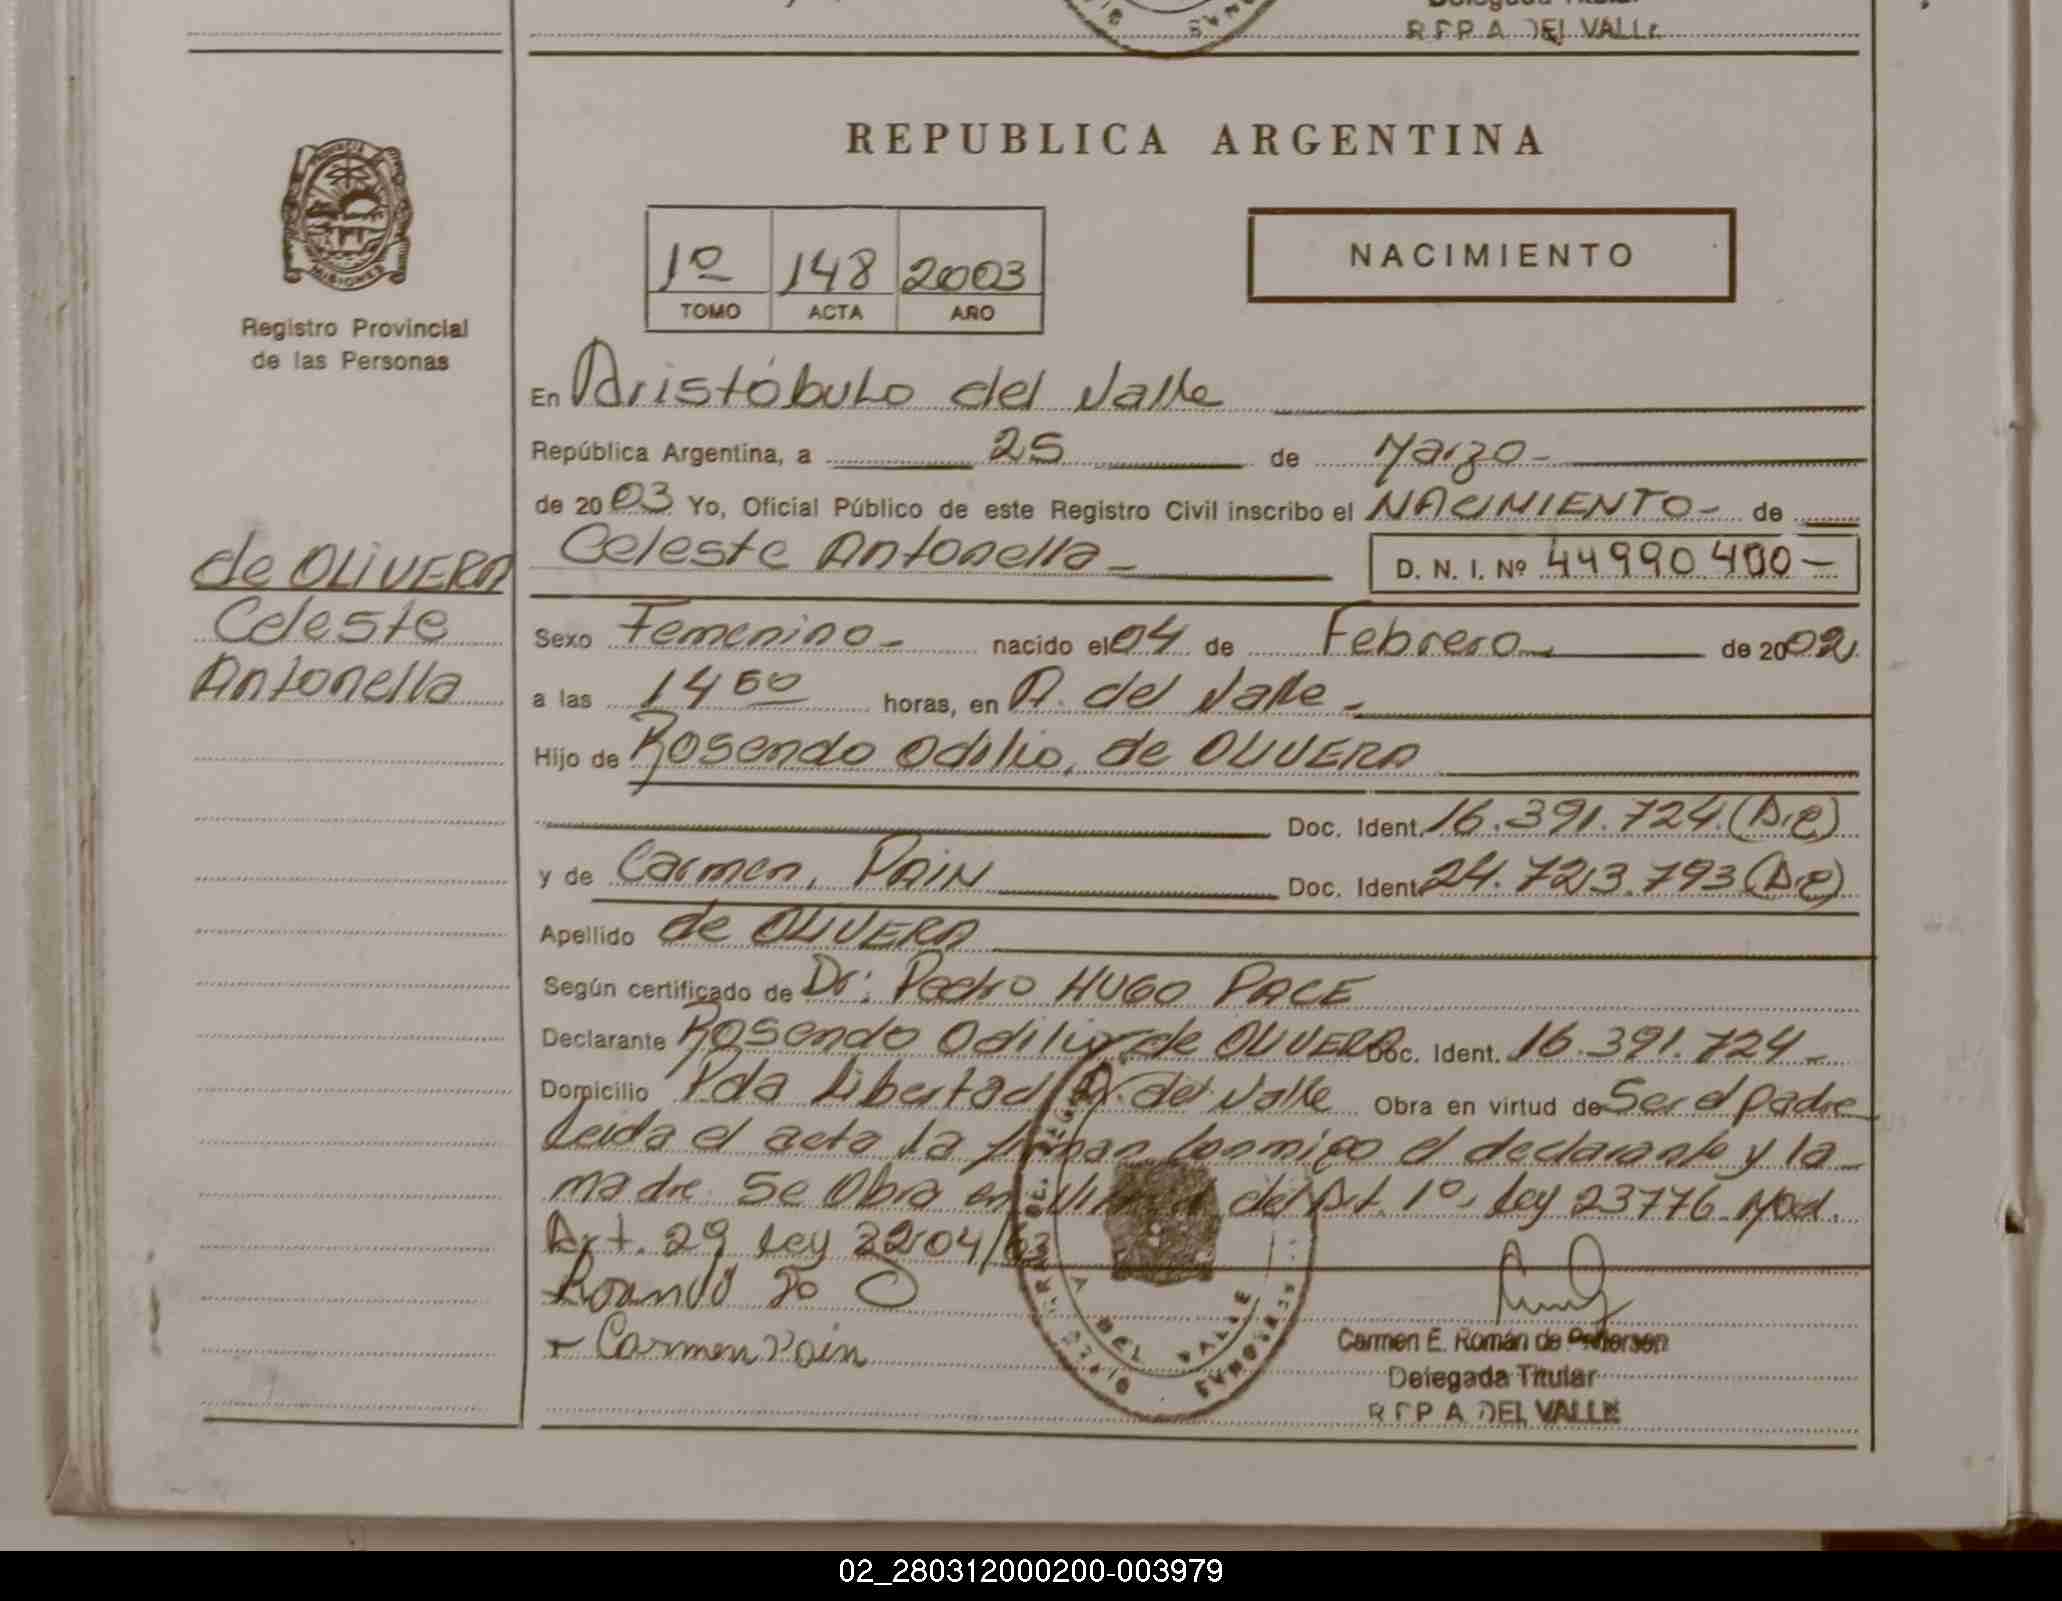 R.F.P.A. DEL VALLE
REPUBLICA ARGENTINA
PROVINCIA
MISIONES
Registro Provincial
de las Personas
1º 148 2003
TOMO ACTA AÑO
NACIMIENTO
En Aristóbulo del Valle
República Argentina, a 25 de Marzo
de 2003 Yo, Oficial Público de este Registro Civil inscribo el NACIMIENTO de
de OLIVERA
Celeste
Antonella
Celeste Antonella D. N. I. Nº 44990400
Sexo Femenino nacido el 04 de Febrero de 2002
a las 14 50 horas, en A. del Valle
Hijo de Rosendo Odilio, de OLIVERA
Doc. Ident. 16.391.724 (D.E)
y de Carmen, PAIN Doc. Ident. 24.723.793 (D.E)
Apellido de OLIVERA
Según certificado de Dr: Pedro HUGO PACE
Declarante Rosendo Odilio de OLIVERA Doc. Ident. 16.391.724
Domicilio Pda Libertad A. del Valle Obra en virtud de Ser el padre
Leida el acta la firman conmigo el declarante y la
madre. Se Obra en del Art. 1º, Ley 23776 Mod.
Art. 29 Ley 2204/63
Carmen Pain
A DEL VALLE
MISIONES
Carmen E. Román de
Delegada Titular
R F P A DEL VALLE
02_280312000200-003979